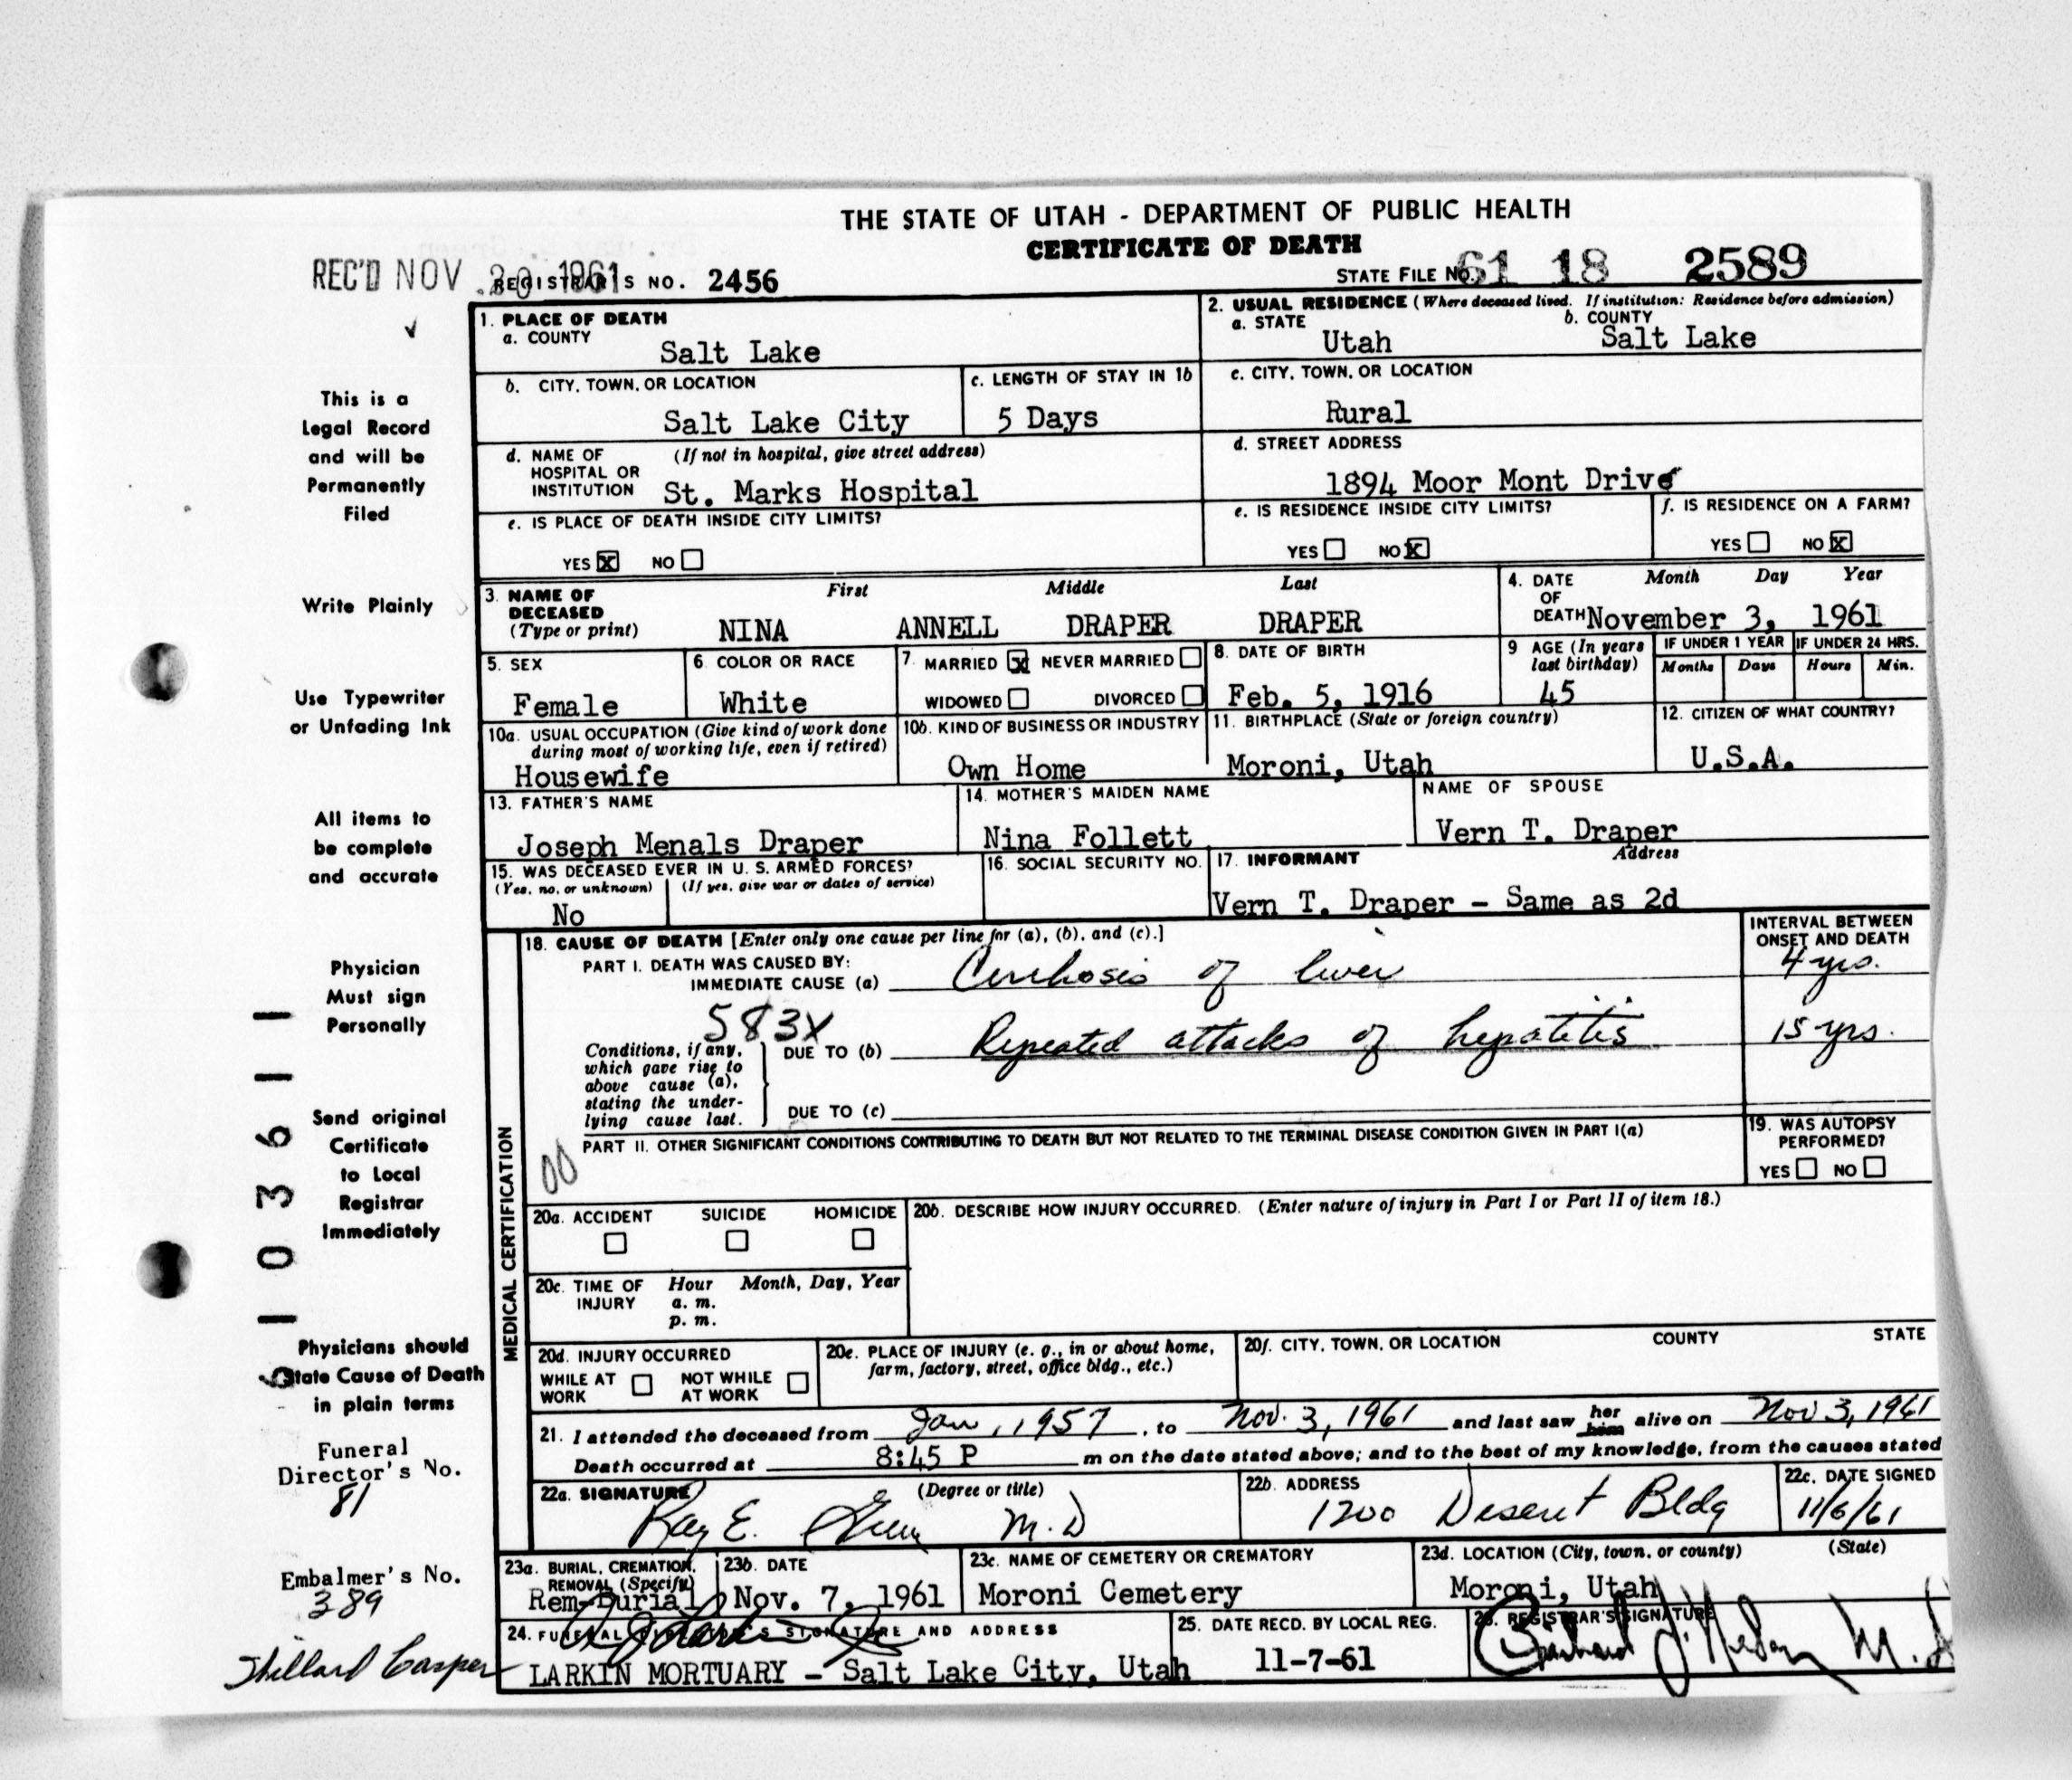 THE STATE OF UTAH - DEPARTMENT OF PUBLIC HEALTH
CERTIFICATE OF DEATH
REC'D NOV 20 1961 REGISTRAR'S NO. 2456 STATE FILE NO. 61 18 2589
1. PLACE OF DEATH
a. COUNTY
Salt Lake
2. USUAL RESIDENCE (Where deceased lived. If institution: Residence before admission)
a. STATE b. COUNTY
Utah Salt Lake
b. CITY, TOWN, OR LOCATION
Salt Lake City
c. LENGTH OF STAY IN 1b
5 Days
c. CITY, TOWN, OR LOCATION
Rural
d. NAME OF (If not in hospital, give street address)
HOSPITAL OR
INSTITUTION St. Marks Hospital
d. STREET ADDRESS
1894 Moor Mont Drive
e. IS PLACE OF DEATH INSIDE CITY LIMITS?
YES X NO
e. IS RESIDENCE INSIDE CITY LIMITS?
YES NO X
f. IS RESIDENCE ON A FARM?
YES NO X
3. NAME OF First Middle Last
DECEASED
(Type or print) NINA ANNELL DRAPER DRAPER
4. DATE Month Day Year
OF
DEATH November 3, 1961
5. SEX
Female
6. COLOR OR RACE
White
7. MARRIED X NEVER MARRIED
WIDOWED DIVORCED
8. DATE OF BIRTH
Feb. 5, 1916
9 AGE (In years
last birthday)
45
IF UNDER 1 YEAR IF UNDER 24 HRS.
Months Days Hours Min.
10a. USUAL OCCUPATION (Give kind of work done
during most of working life, even if retired)
Housewife
10b. KIND OF BUSINESS OR INDUSTRY
Own Home
11. BIRTHPLACE (State or foreign country)
Moroni, Utah
12. CITIZEN OF WHAT COUNTRY?
U.S.A.
13. FATHER'S NAME
Joseph Menals Draper
14. MOTHER'S MAIDEN NAME
Nina Follett
NAME OF SPOUSE
Vern T. Draper
15. WAS DECEASED EVER IN U. S. ARMED FORCES?
(Yes, no, or unknown) (If yes, give war or dates of service)
No
16. SOCIAL SECURITY NO.
17. INFORMANT Address
Vern T. Draper - Same as 2d
MEDICAL CERTIFICATION
18. CAUSE OF DEATH [Enter only one cause per line for (a), (b), and (c).]
INTERVAL BETWEEN
ONSET AND DEATH
PART I. DEATH WAS CAUSED BY:
IMMEDIATE CAUSE (a) Cirrhosis of liver 4 yrs.
583X
Conditions, if any,
which gave rise to
above cause (a),
stating the under-
lying cause last.
DUE TO (b) Repeated attacks of hepatitis 15 yrs.
DUE TO (c)
PART II. OTHER SIGNIFICANT CONDITIONS CONTRIBUTING TO DEATH BUT NOT RELATED TO THE TERMINAL DISEASE CONDITION GIVEN IN PART I(a)
00
19. WAS AUTOPSY
PERFORMED?
YES NO
20a. ACCIDENT SUICIDE HOMICIDE
20b. DESCRIBE HOW INJURY OCCURRED. (Enter nature of injury in Part I or Part II of item 18.)
20c. TIME OF Hour Month, Day, Year
INJURY a. m.
p. m.
20d. INJURY OCCURRED
WHILE AT NOT WHILE
WORK AT WORK
20e. PLACE OF INJURY (e. g., in or about home,
farm, factory, street, office bldg., etc.)
20f. CITY, TOWN, OR LOCATION COUNTY STATE
21. I attended the deceased from Jan, 1957, to Nov. 3, 1961 and last saw her him alive on Nov 3, 1961
Death occurred at 8:45 P m on the date stated above; and to the best of my knowledge, from the causes stated
22a. SIGNATURE (Degree or title)
Ray E. M.D
22b. ADDRESS
1200 Deseret Bldg
22c. DATE SIGNED
11/6/61
23a. BURIAL, CREMATION,
REMOVAL (Specify)
Rem-Burial
23b. DATE
Nov. 7, 1961
23c. NAME OF CEMETERY OR CREMATORY
Moroni Cemetery
23d. LOCATION (City, town, or county) (State)
Moroni, Utah
24. FUNERAL DIRECTOR'S SIGNATURE AND ADDRESS
LARKIN MORTUARY - Salt Lake City, Utah
25. DATE RECD. BY LOCAL REG.
11-7-61
26. REGISTRAR'S SIGNATURE
M.D
This is a
Legal Record
and will be
Permanently
Filed
Write Plainly
Use Typewriter
or Unfading Ink
All items to
be complete
and accurate
Physician
Must sign
Personally
Send original
Certificate
to Local
Registrar
Immediately
Physicians should
State Cause of Death
in plain terms
Funeral
Director's No.
81
Embalmer's No.
389
Casper
1103611